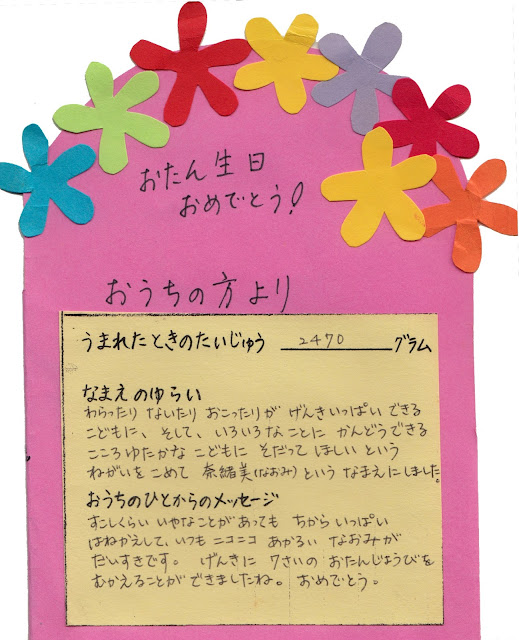 おたん生日
おめでとう!
おうちの方より
うまれたときのたいじゅう 2470 グラム
なまえのゆらい
わらったり ないたり おこったりが げんきいっぱい できる
こどもに、そして、いろいろなことに かんどうできる
こころゆたかな こどもに そだって ほしい という
ねがいを こめて 奈緒美(なおみ)という なまえにしました。
おうちのひとからのメッセージ
すこしくらい いやなことが あっても ちから いっぱい
はねかえして、いつも ニコニコ あかるい なおみが
だいすきです。 げんきに 7さいの おたんじょうびを
むかえることが できましたね。 おめでとう。